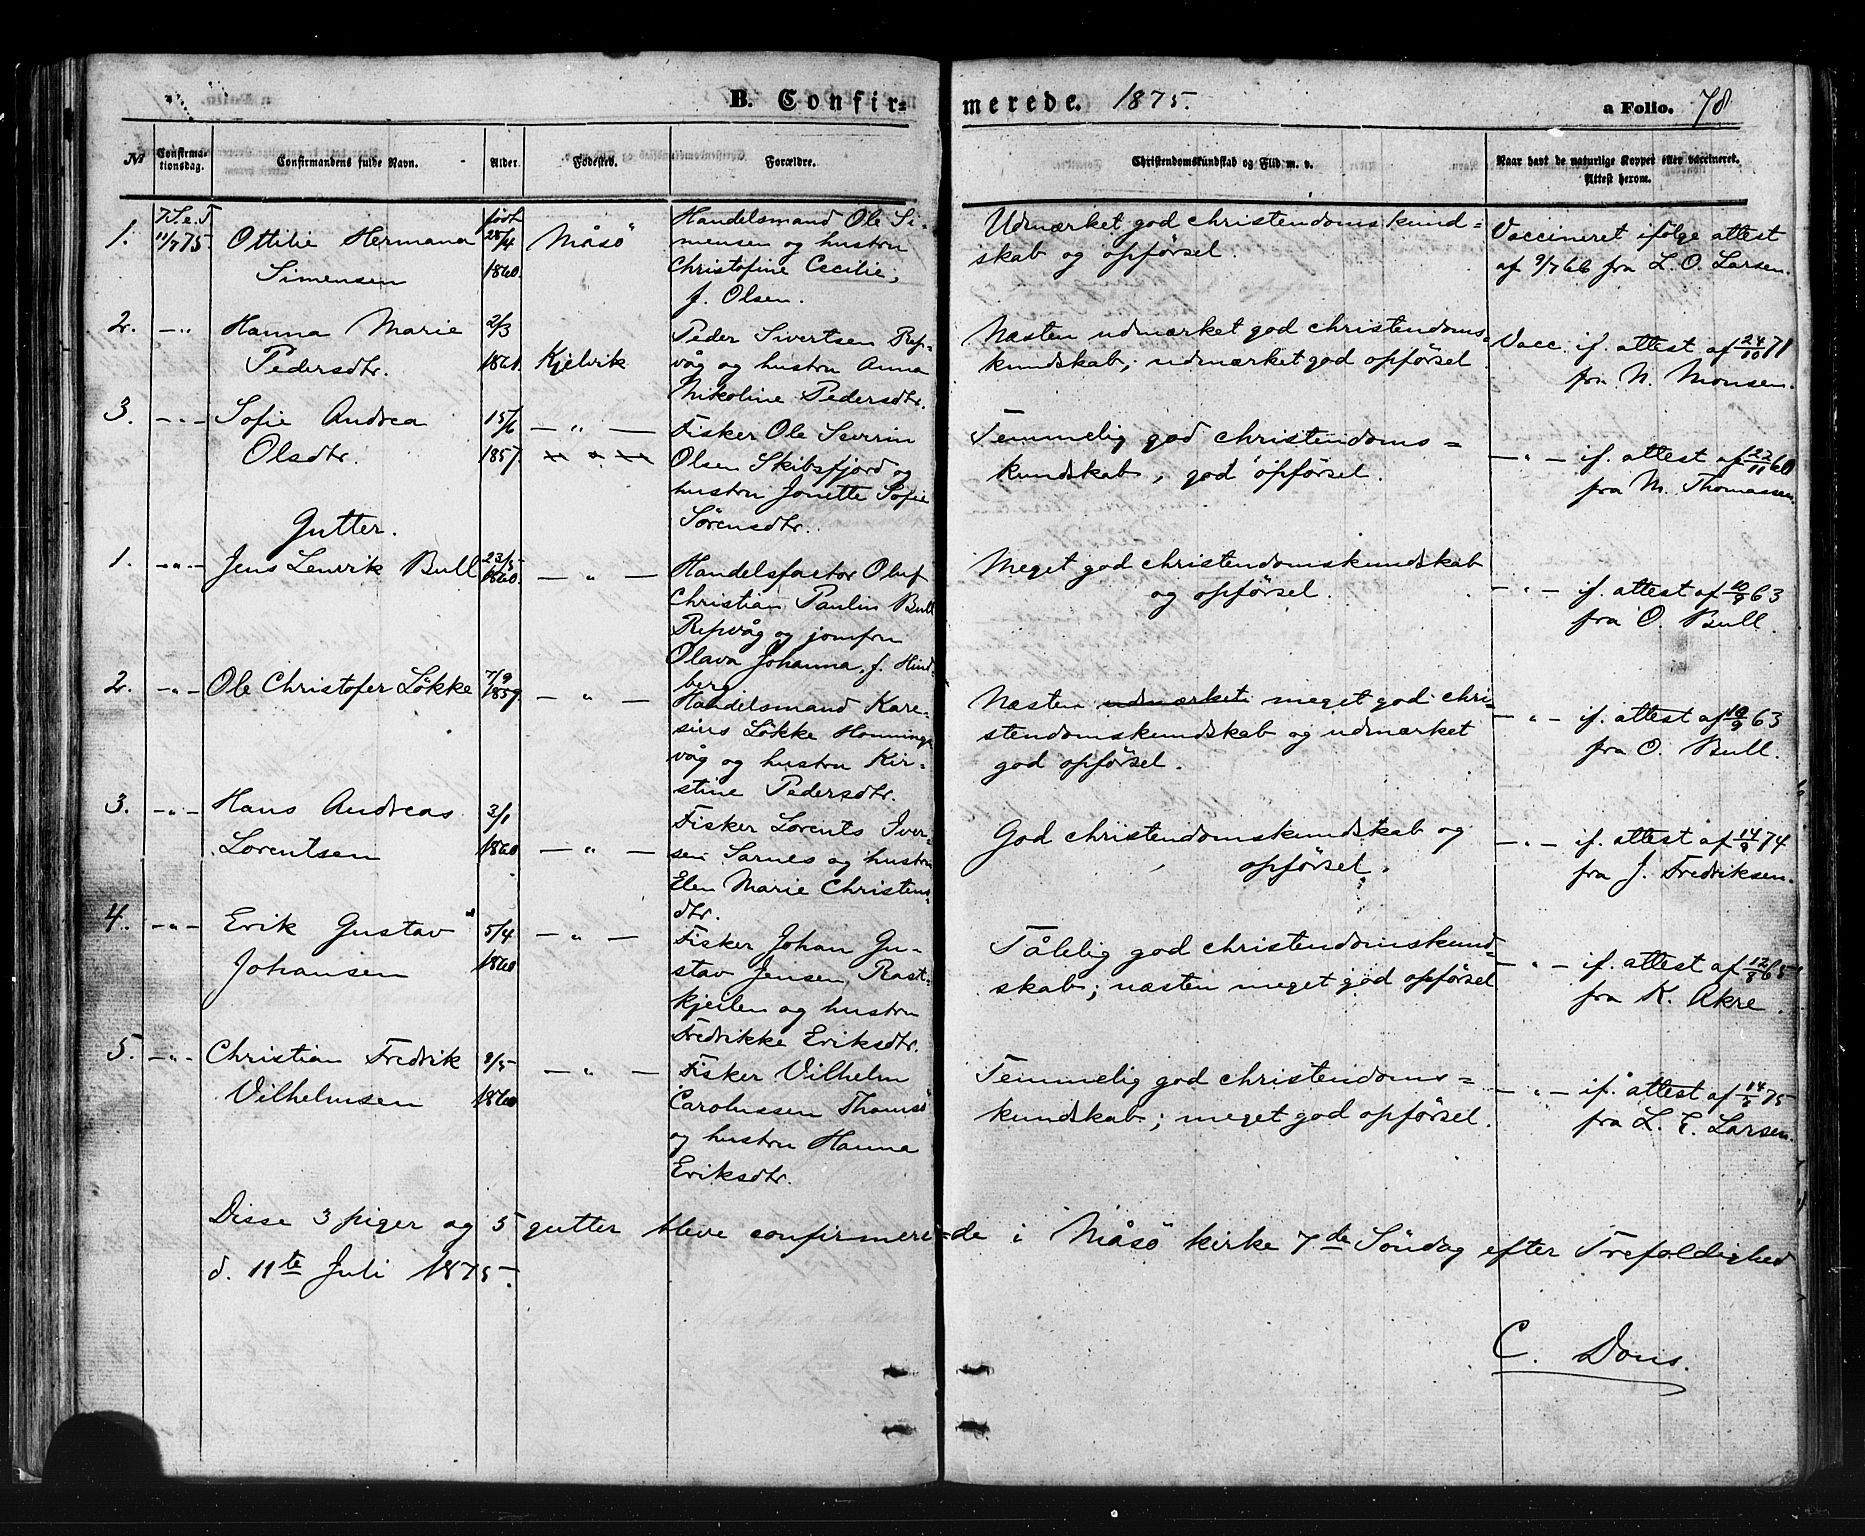 B. Confirmerede. 1875. a Folio. 78
№ Confirmationsdag. Confirmandens fulde Navn. Alder. Fødested. Forældre. Christendomskundskab og Flid m. v. Naar havt de naturlige Kopper eller vaccineret. Attest herom.
1. 7 S. e. T. 11/7 75 Ottilie Hermana Simensen
født 28/4 1860. Måsö
Handelsmand Ole Si-
mensen og hustru
Christofine Cecilie,
f. Olsen.
Udmærket god christendomskund-
skab og opförsel.
Vaccineret ifölge attest
af 9/7 66 fra L. O. Larsen.
2. — " Hanna Marie
Pedersdtr.
2/3 1861. Kjelvik
Peder Sivertsen Rep-
våg og hustru Anna
Nikoline Pedersdtr.
Næsten udmærket god christendoms-
kundskab; udmærket god opförsel
Vacc. if. attest af 24/10 71
fra N. Monsen.
3. — " — Sofie Andrea
Olsdtr.
15/6 1857. — " —
Fisker Ole Severin
Olsen Skibsfjord og
hustru Jonette Sofie
Sörensdtr.
Temmelig god christendoms=
kundskab, god opförsel.
— " — if. attest af 22/11 60
fra M. Thomassen.
Gutter.
1. — " — Jens Lenvik Bull
23/5 1860. — " —
Handelsfactor Oluf
Christian Paulin Bull
Repvåg og jomfru
Olava Johanna, f. Hind
berg.
Meget god christendomskundskab
og opförsel.
— " — if. attest af 10/9 63
fra O. Bull.
2. — " — Ole Christofer Lökke
7/9 1859. — " —
Handelsmand Kare-
sius Lökke Honnings-
våg og hustru Kir-
stine Pedersdtr.
Næsten udmærket meget god chri-
stendomskundskab og udmærket
god opförsel.
— " — if. attest af 10/9 63
fra O. Bull.
3. — " — Hans Andreas
Lorentsen
3/1 1860 — " —
Fisker Lorents Iver-
sen Sarnes og hustru
Elen Marie Christens-
dtr.
God christendomskundskab og
opförsel.
— " — if. attest af 14/9 74
fra J. Fredriksen.
4. — " — Erik Gustav
Johansen
5/4 1860 — " —
Fisker Johan Gu-
stav Jensen
kjeilen og hustru
Fredrikke Eriksdtr.
Tålelig god christendomskund-
skab; næsten meget god opförsel
— " — if. attest af 12/8 65
fra K. Akre.
5. — " — Christian Fredrik
Vilhelmsen
9/5 1860 — " —
Fisker Vilhelm
Carolussen Thomsö
og hustru Hanna
Eriksdtr.
Temmelig god christendoms=
kundskab; meget god opförsel.
— " — if. attest af 14/6 75
fra L. E. Larsen.
Disse 3 piger og 5 gutter bleve confirmere-de i Måsö kirke 7de Söndag efter Trefoldighed
d. 11te Juli 1875.
C. Dons.